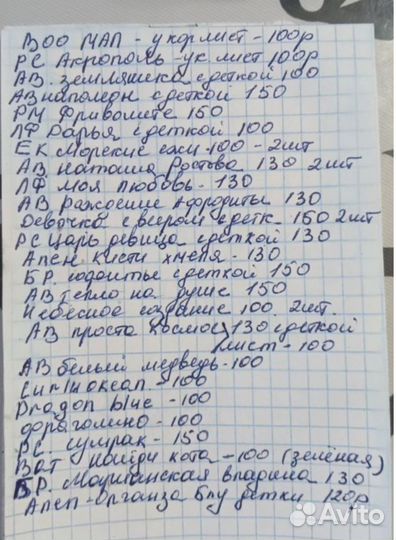 Воо МАП - укор лист - 100р
РС Акрополь - ук. лист 100р
АВ. земляшека с деткой 100
АВ наполеон с деткой 150
РМ Фриволите 150
ЛФ Дарья с деткой 100
ЕК Морские ежи - 100 - 2шт
АВ Наташа Ростова 130 2шт
ЛФ моя любовь - 130
АВ Рождение Афродиты 130
Девочка с веером с детк. 150 2шт
РС Царь девица с деткой 130
Апен. Кисти хмеля - 130
БР. с деткой 150
АВ тепло на душе 150
Небесное создание 100. 2шт.
АВ просто космос 130 с деткой
лист - 100
АВ белый медведь - 100
океан - 100
Dragon blue - 100
фраголино - 100
РС. сумрак - 150
Ват найди кота - 100 (зелёная)
БР. Марианская впадина 130
Апен - Органза блу детки 120р
Avito